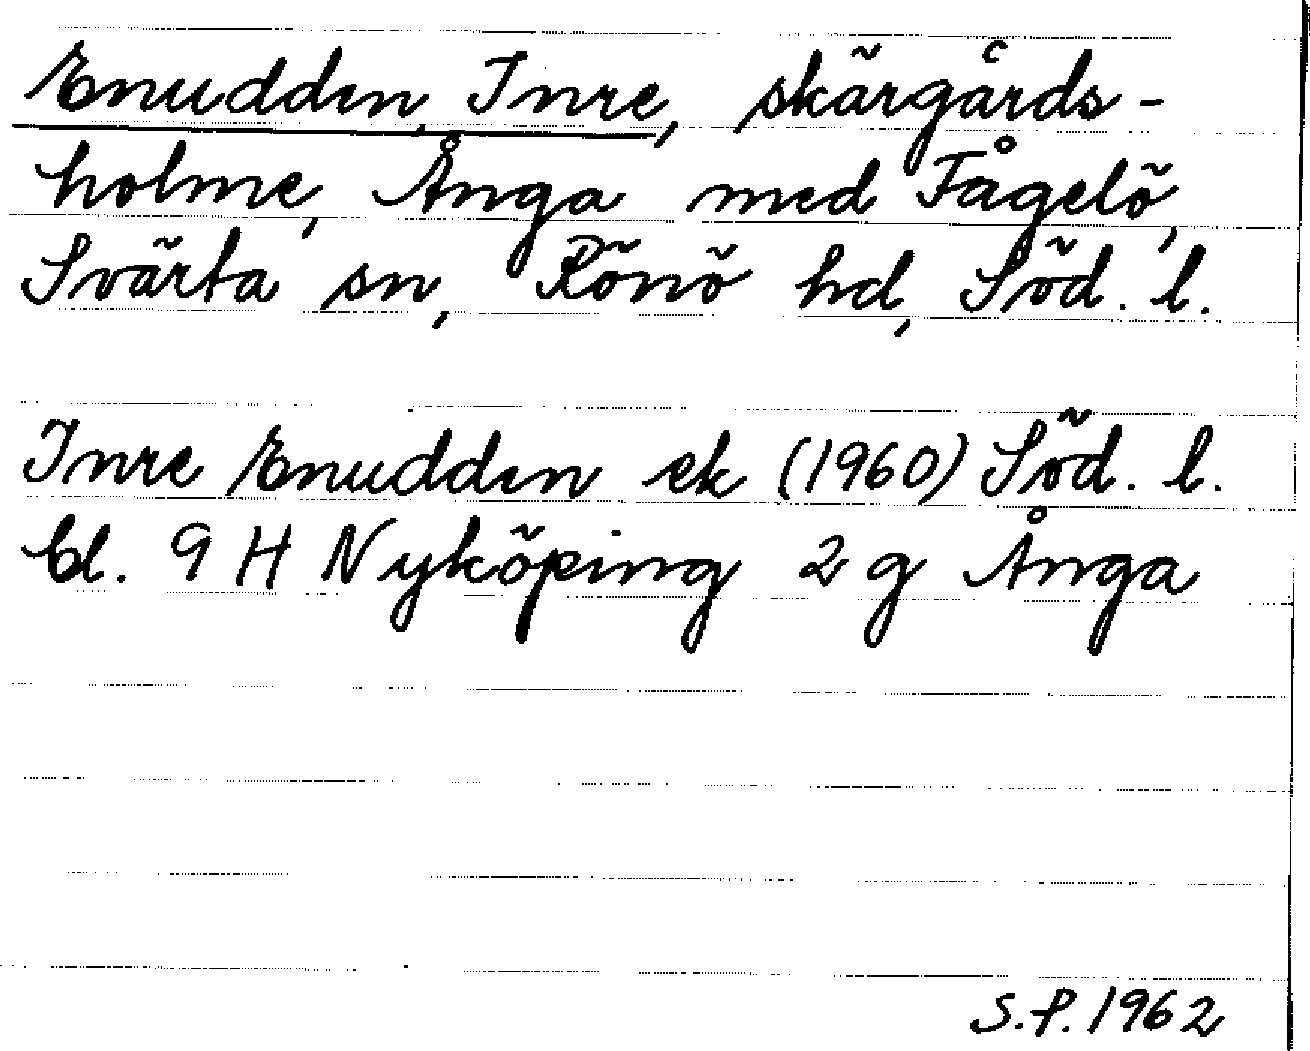 Enudden, Inre, skärgårds-
holme, Ånga med Fågelö,
Svärta sn, Rönö hd, Söd. l.
Inre Enudden ek (1960) Söd. l.
bl. 9 H Nyköping 2 g Ånga
S.P. 1962